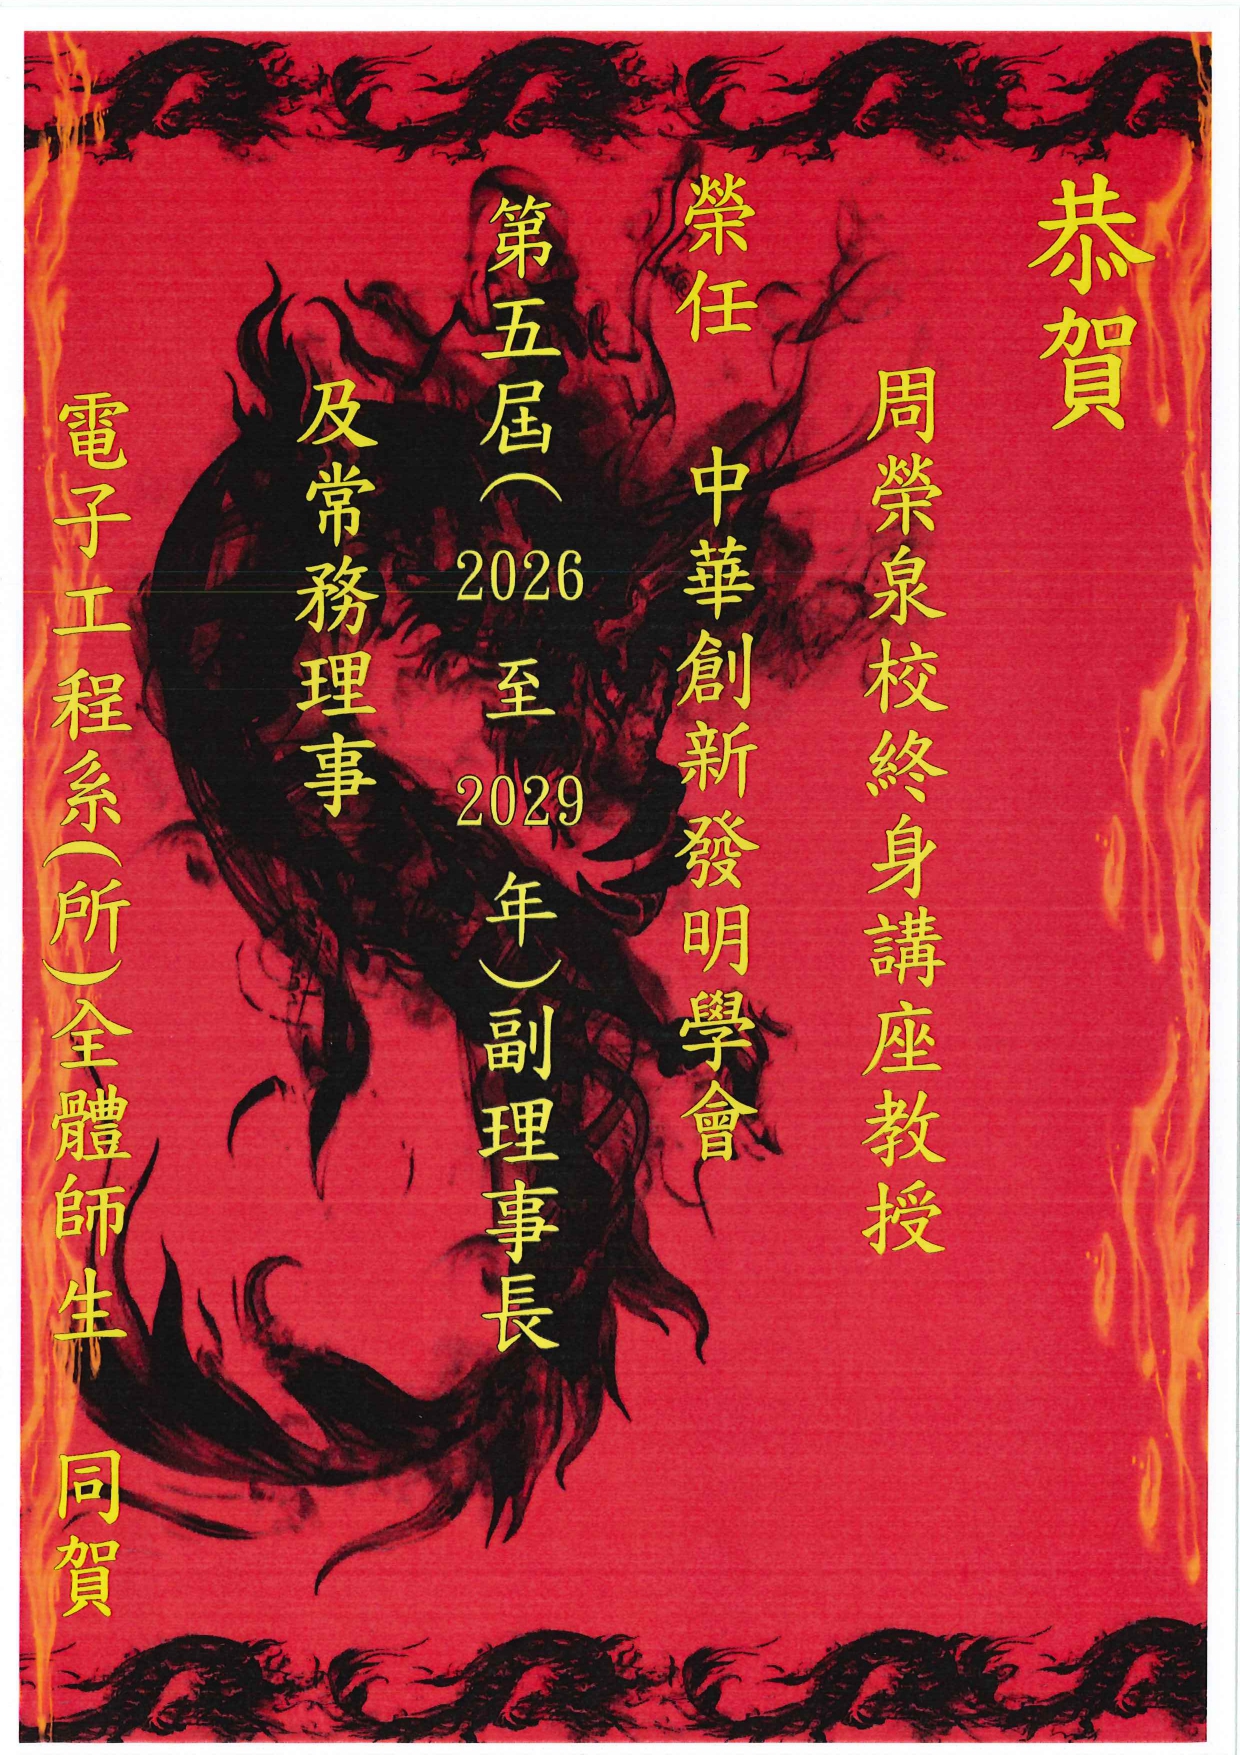 恭賀
周榮泉校終身講座教授
榮任 中華創新發明學會
第五屆(2026 至 2029 年)副理事長
及常務理事
電子工程系(所)全體師生 同賀